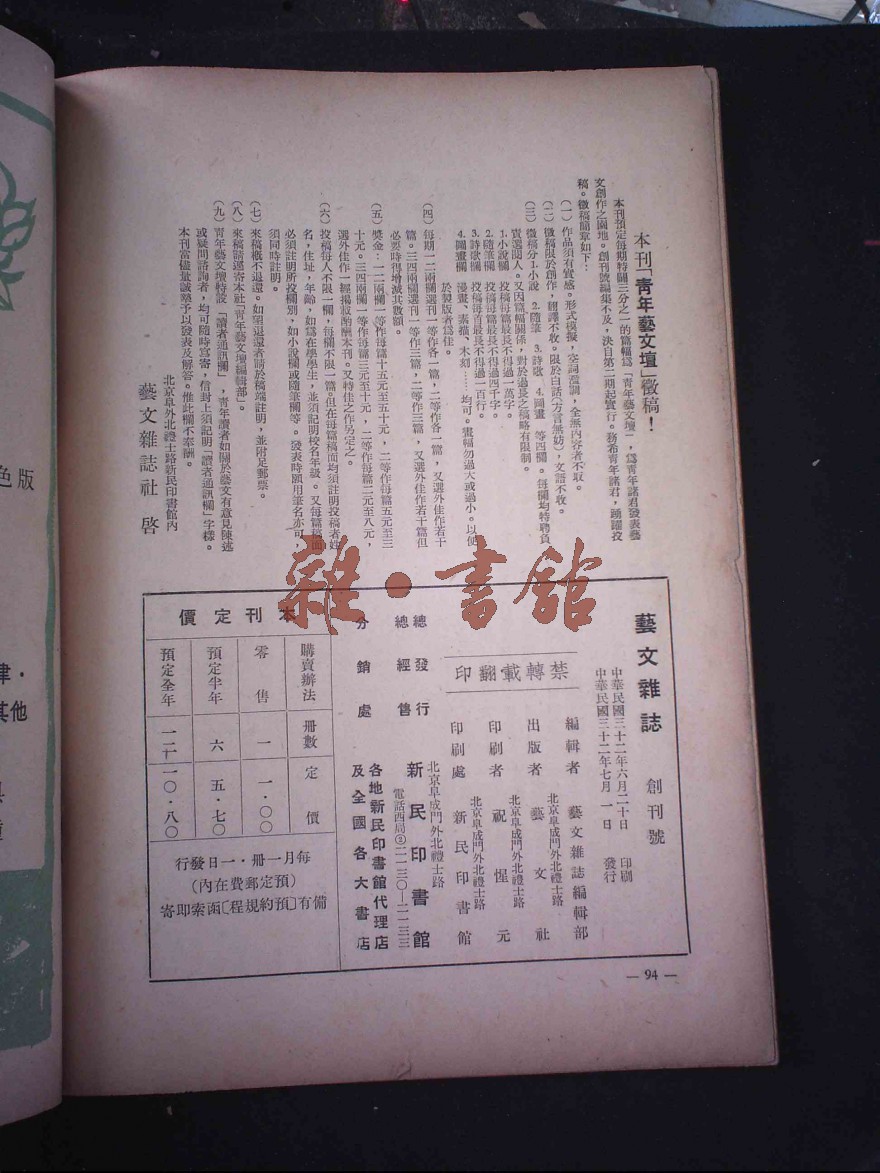 本刊「青年藝文壇」徵稿！
本刊預定每期特闢三分之一的篇幅爲「青年藝文壇」，爲青年諸君發表藝
文創作之園地。創刊號編集不及，決自第二期起實行。務希青年諸君，踴躍投
稿。徵稿簡章如下：
（一）作品須有實感。形式模擬，空詞濫調，全無內容者不取。
（二）徵稿限於創作，翻譯不收。限於白話（方言無妨），文語不收。
（三）徵稿分1.小說 2.隨筆 3.詩歌 4.圖畫 等四欄。每欄均特聘負
責選閱人。又因篇幅關係，對於過長之稿略有限制。
1.小說欄 投稿每篇最長不得過一萬字。
2.隨筆欄 投稿每篇最長不得過四千字。
3.詩歌欄 投稿每首最長不得過一百行。
4.圖畫欄 漫畫、素描、木刻……均可。畫幅勿過大或過小。以便
於製版者爲佳。
（四）每期一二兩欄選刊一等作各一篇，二等作各一篇，又選外佳作若干
篇。三四兩欄選刊一等作三篇，二等作三篇，又選外佳作若干篇但
必要時得增減其數額。
（五）獎金：一二兩欄一等作每篇十五元至五十元，二等作每篇五元至三
十元。三四兩欄一等作每篇三元至十元，二等作每篇二元至八元，
選外佳作一經揭載酌酬本刊。又特佳之作另定之。
（六）投稿每人不限一欄，每欄不限一篇。但在每篇稿面均須註明投稿者姓
名，住址，年齡，如爲在學學生，並須記明校名年級。又每篇稿面
必須註明所投欄別，如小說欄或隨筆欄等。發表時願用筆名亦可，
須同時註明。
（七）來稿概不退還。如望退還者請於稿端註明，並附足郵票。
（八）來稿請逕寄本社「青年藝文壇編輯部」。
（九）青年藝文壇特設「讀者通訊欄」，青年讀者如關於藝文有意見陳述
或疑問諮詢者，均可隨時寫寄，信封上須記明「讀者通訊欄」字樣。
本刊當儘量誠摯予以發表及解答。惟此欄不奉酬。
北京阜外北禮士路新民印書館內
藝文雜誌社 啓
藝文雜誌 創刊號
中華民國三十二年六月二十日 印刷
中華民國三十二年七月一日 發行
編輯者 藝文雜誌編輯部
北京阜成門外北禮士路
出版者 藝文社
北京阜成門外北禮士路
印刷者 祝惺元
北京阜成門外北禮士路
印刷處 新民印書館
禁轉載翻印
北京阜成門外北禮士路
總發行
總經售 新民印書館
電話西局②二一三〇—二一三三
分銷處 各地新民印書館代理店
及全國各大書店
本刊定價
購買辦法 冊數 定價
零售 一 一・〇〇
預定半年 六 五・七〇
預定全年 一二 一〇・八〇
每月一冊・一日發行
（預定郵費在內）
備有〔預約規程〕函索即寄
— 94 —
雜・書館
色版
其他